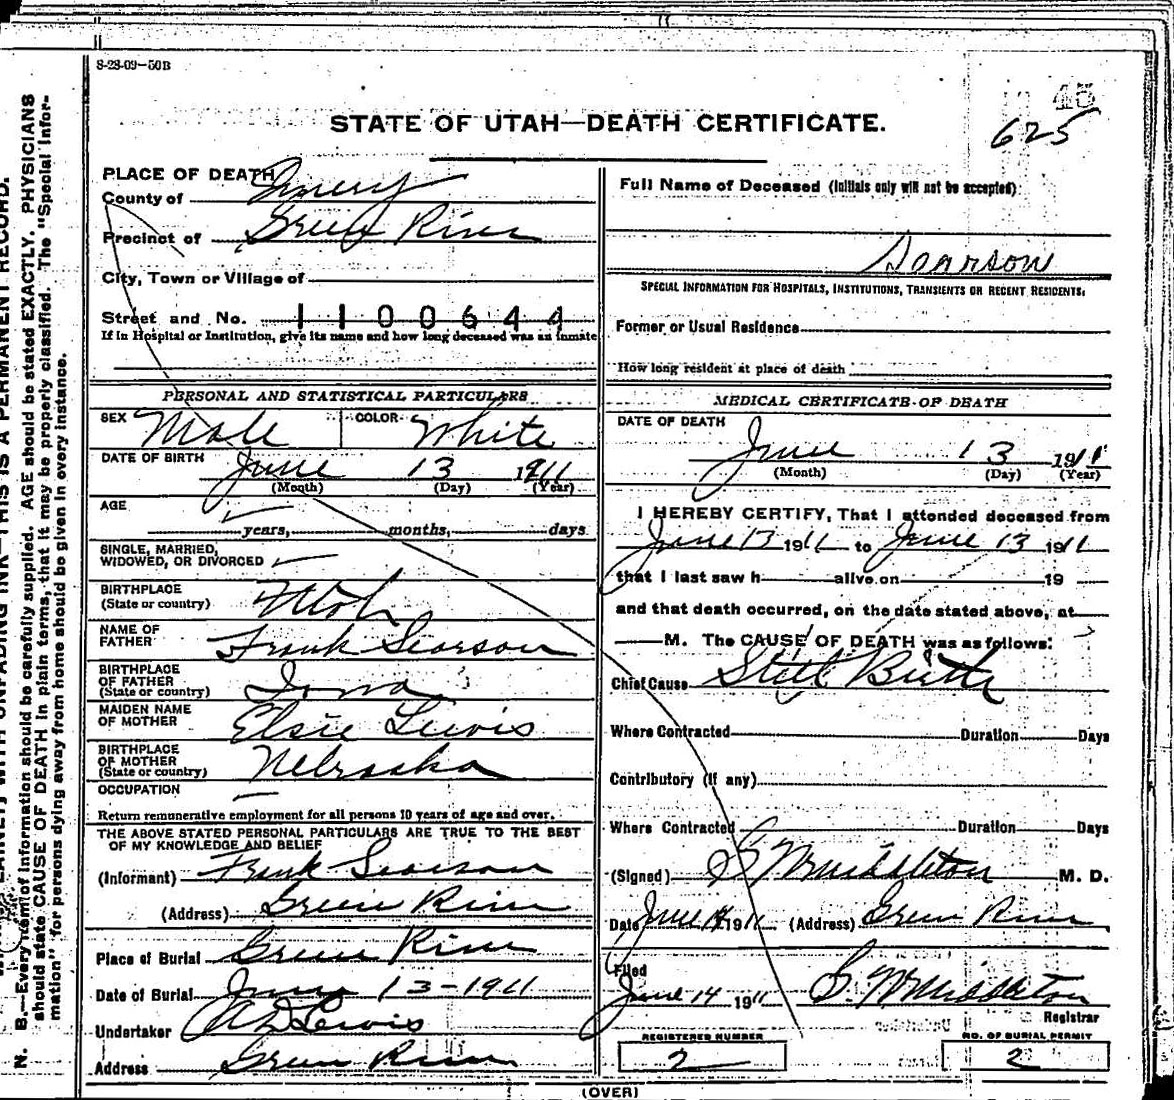 S-28-09-50B
45
625
STATE OF UTAH—DEATH CERTIFICATE.
PLACE OF DEATH
County of Emery
Precinct of Green River
City, Town or Village of
Street and No. 1100644
If in Hospital or Institution, give its name and how long deceased was an inmate
PERSONAL AND STATISTICAL PARTICULARS
SEX Male COLOR White
DATE OF BIRTH June 13 1911
(Month) (Day) (Year)
AGE
years, months, days
SINGLE, MARRIED,
WIDOWED, OR DIVORCED
BIRTHPLACE
(State or country) Utah
NAME OF
FATHER Frank Searson
BIRTHPLACE
OF FATHER
(State or country) Iowa
MAIDEN NAME
OF MOTHER Elsie Lewis
BIRTHPLACE
OF MOTHER
(State or country) Nebraska
OCCUPATION
Return remunerative employment for all persons 10 years of age and over.
THE ABOVE STATED PERSONAL PARTICULARS ARE TRUE TO THE BEST
OF MY KNOWLEDGE AND BELIEF
(Informant) Frank Searson
(Address) Green River
Place of Burial Green River
Date of Burial June 13-1911
Undertaker Lewis
Address Green River
Full Name of Deceased (Initials only will not be accepted)
Searson
SPECIAL INFORMATION FOR HOSPITALS, INSTITUTIONS, TRANSIENTS OR RECENT RESIDENTS.
Former or Usual Residence
How long resident at place of death
MEDICAL CERTIFICATE OF DEATH
DATE OF DEATH
June 13 1911
(Month) (Day) (Year)
I HEREBY CERTIFY, That I attended deceased from
June 13 1911 to June 13 1911
that I last saw h alive on 19
and that death occurred, on the date stated above, at
M. The CAUSE OF DEATH was as follows:
Chief Cause Still Birth
Where Contracted Duration Days
Contributory (if any)
Where Contracted Duration Days
(Signed) Middleton M. D.
Date June 14 1911 (Address) Green River
Filed
June 14 1911 Middleton
Registrar
REGISTERED NUMBER
2
NO. OF BURIAL PERMIT
2
(OVER)
UNFADING INK—THIS IS A PERMANENT RECORD.
N. B.—Every item of information should be carefully supplied. AGE should be stated EXACTLY. PHYSICIANS
should state CAUSE OF DEATH in plain terms, that it may be properly classified. The "Special Infor-
mation" for persons dying away from home should be given in every instance.